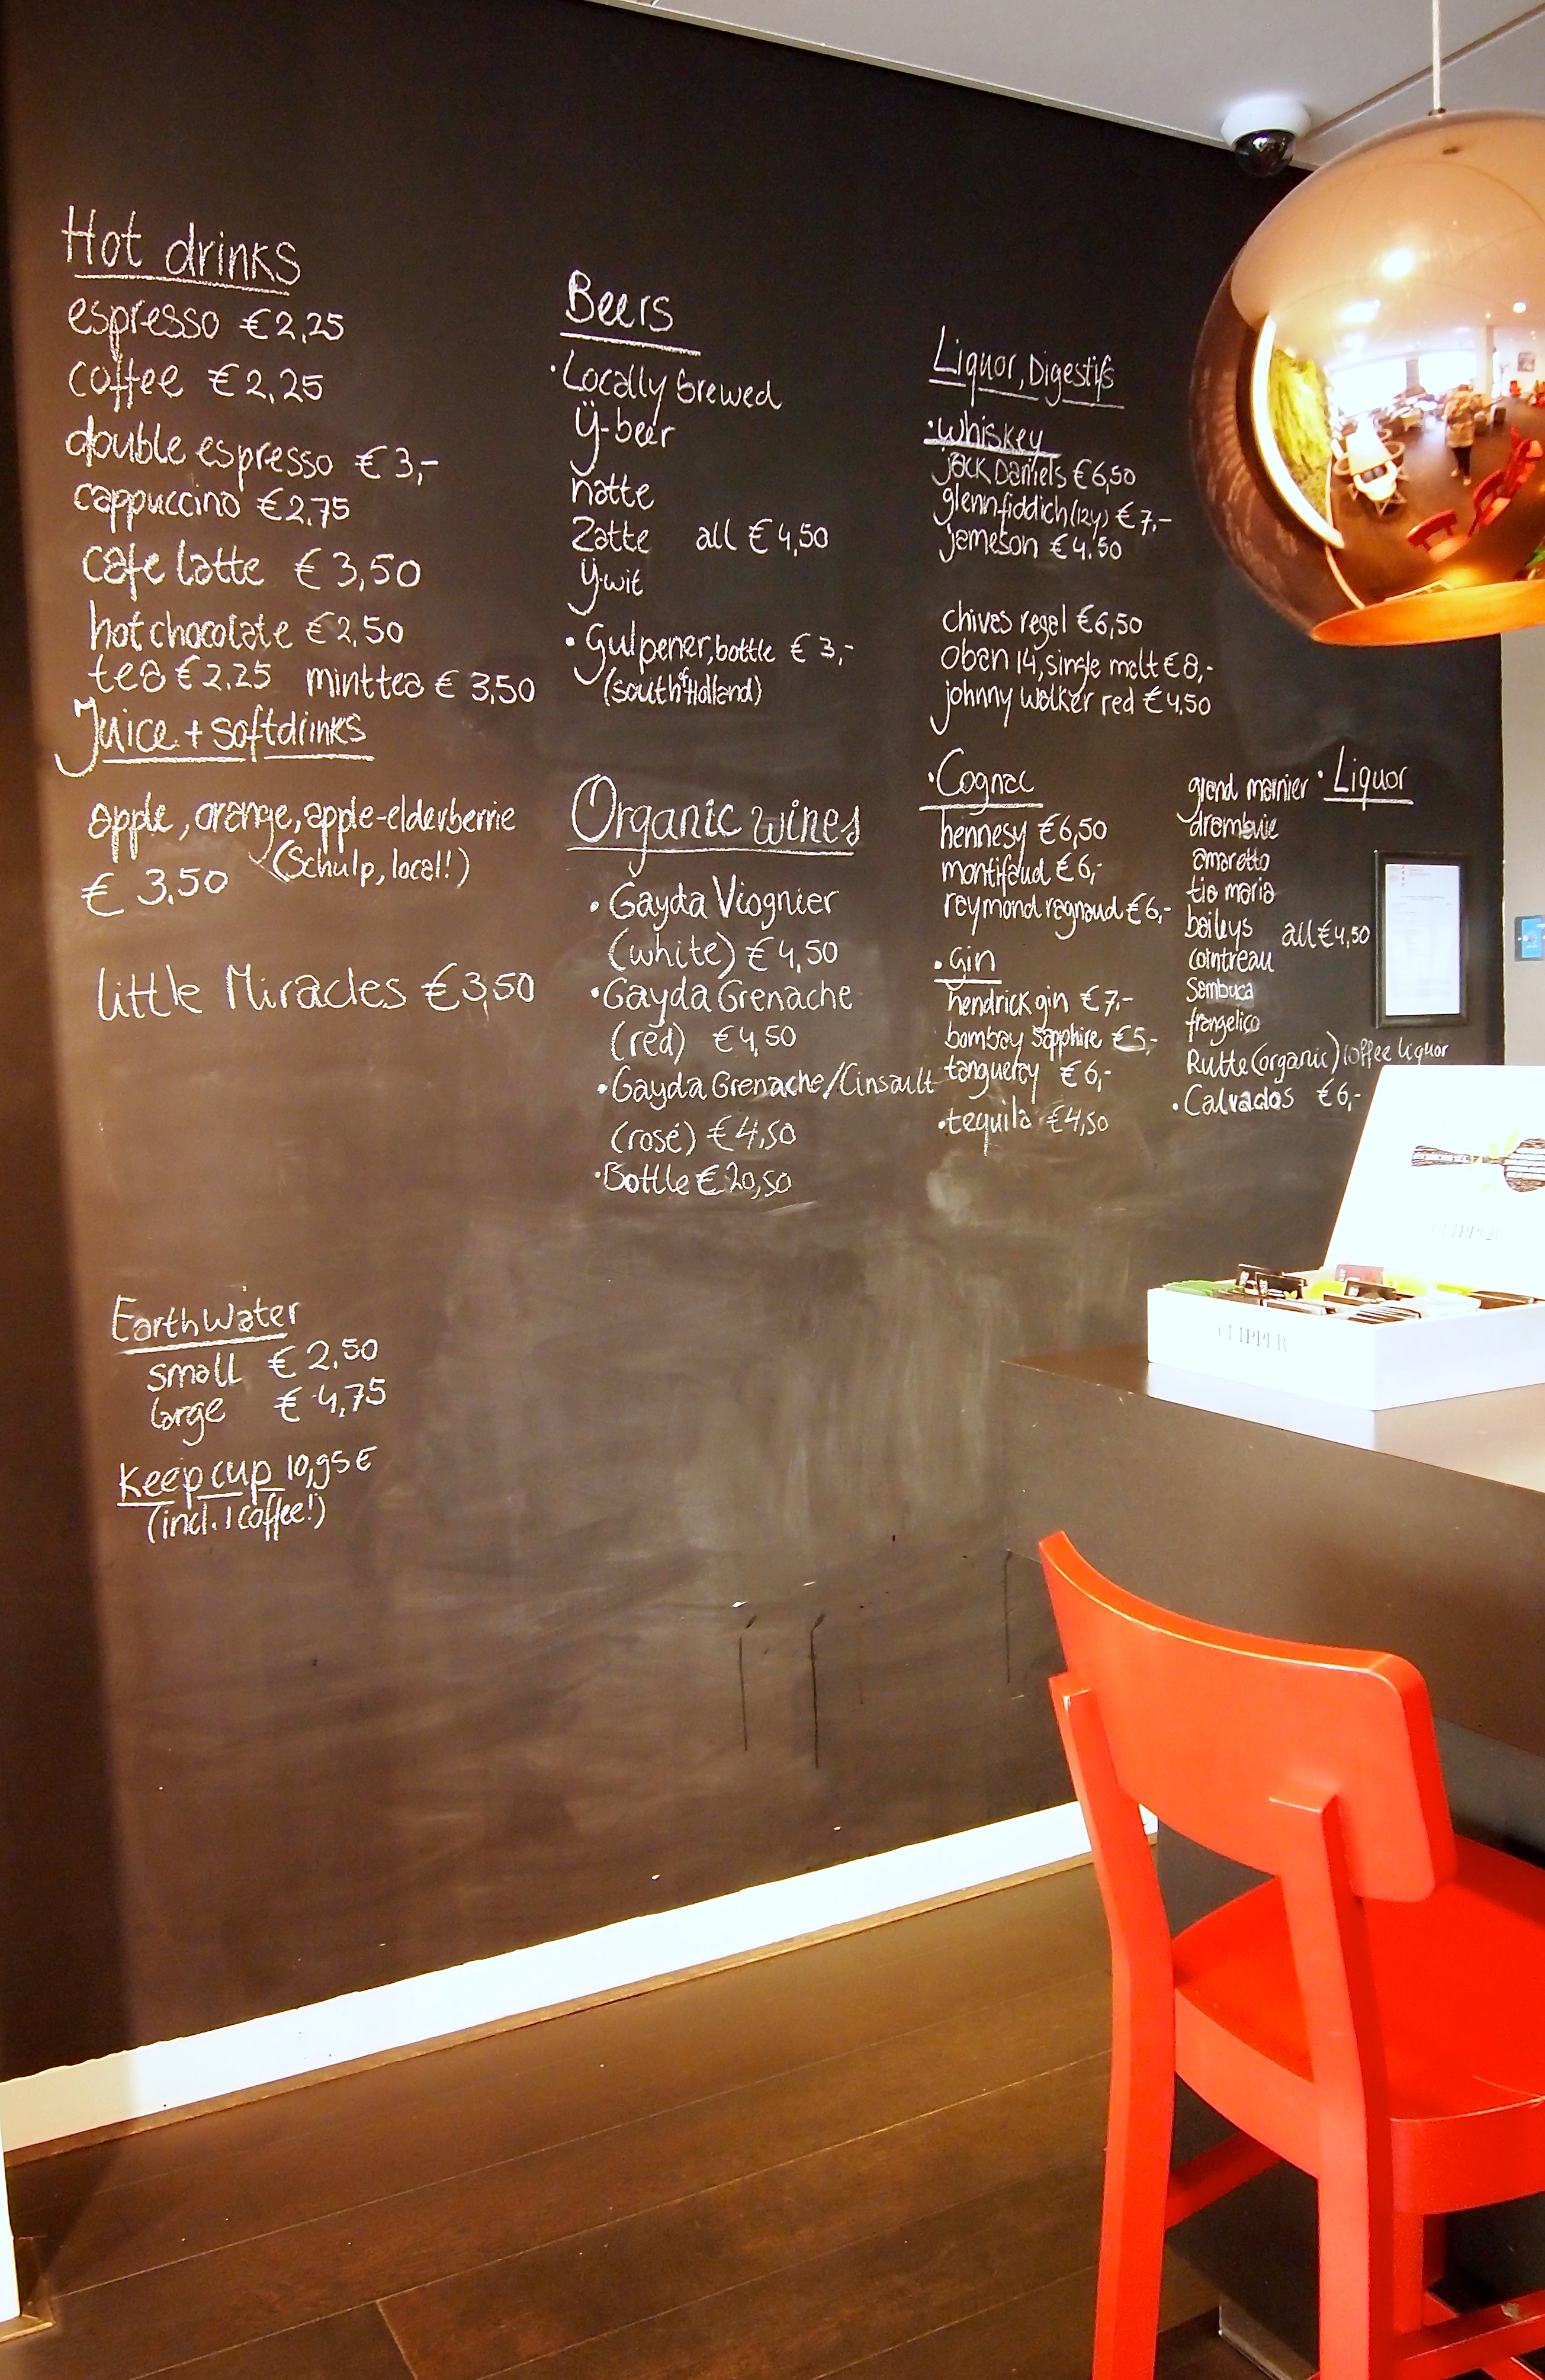 Hot drinks
espresso €2,25
coffee €2,25
double espresso €3,-
cappuccino €2,75
cafe latte €3,50
hot chocolate €2,50
tea €2,25 mint tea €3,50
Juice + softdrinks
apple, orange, apple-elderberrie
(Schulp, local!)
€ 3,50
little Miracles €3,50
Earth Water
small € 2,50
large € 4,75
Keep cup 10,95 €
(incl. 1 coffee!)
Beers
• Locally brewed
Ÿ-beer
natte
Zatte all €4,50
Ÿ-wit
• Gulpener, bottle € 3,-
(south of Holland)
Organic wines
• Gayda Viognier
(white) €4,50
• Gayda Grenache
(red) €4,50
• Gayda Grenache/Cinsault
(rosé) €4,50
• Bottle €20,50
Liquor, Digestifs
• whiskey
jack Daniels €6,50
glennfiddich (12y) €7,-
jameson €4.50
chives regal €6,50
oban 14, single malt €8,-
johnny walker red €4,50
• Cognac
hennesy €6,50
montifaud €6,-
raymond ragnaud €6,-
• gin
hendrick gin €7,-
bombay sapphire €5,-
tangueray €6,-
• tequila €4,50
• Liquor
grand marnier
drambuie
amaretto
tia maria
baileys all €4,50
cointreau
Sambuca
frangelico
Rutte (organic) coffee liquor
• Calvados €6,-
CLIPPER
CLIPPER